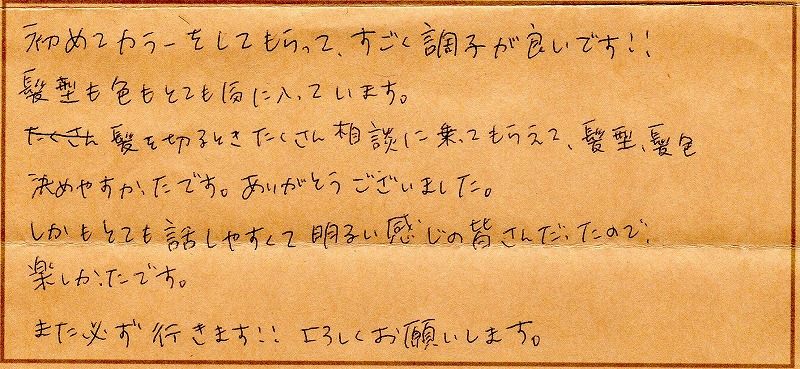 初めてカラーをしてもらって、すごく調子が良いです!!
髪型も色もとても気に入っています。
たくさん 髪を切るときたくさん相談に乗ってもらえて、髪型、髪色
決めやすかったです。ありがとうございました。
しかもとても話しやすくて明るい感じの皆さんだったので、
楽しかったです。
また必ず行きます!! よろしくお願いします。